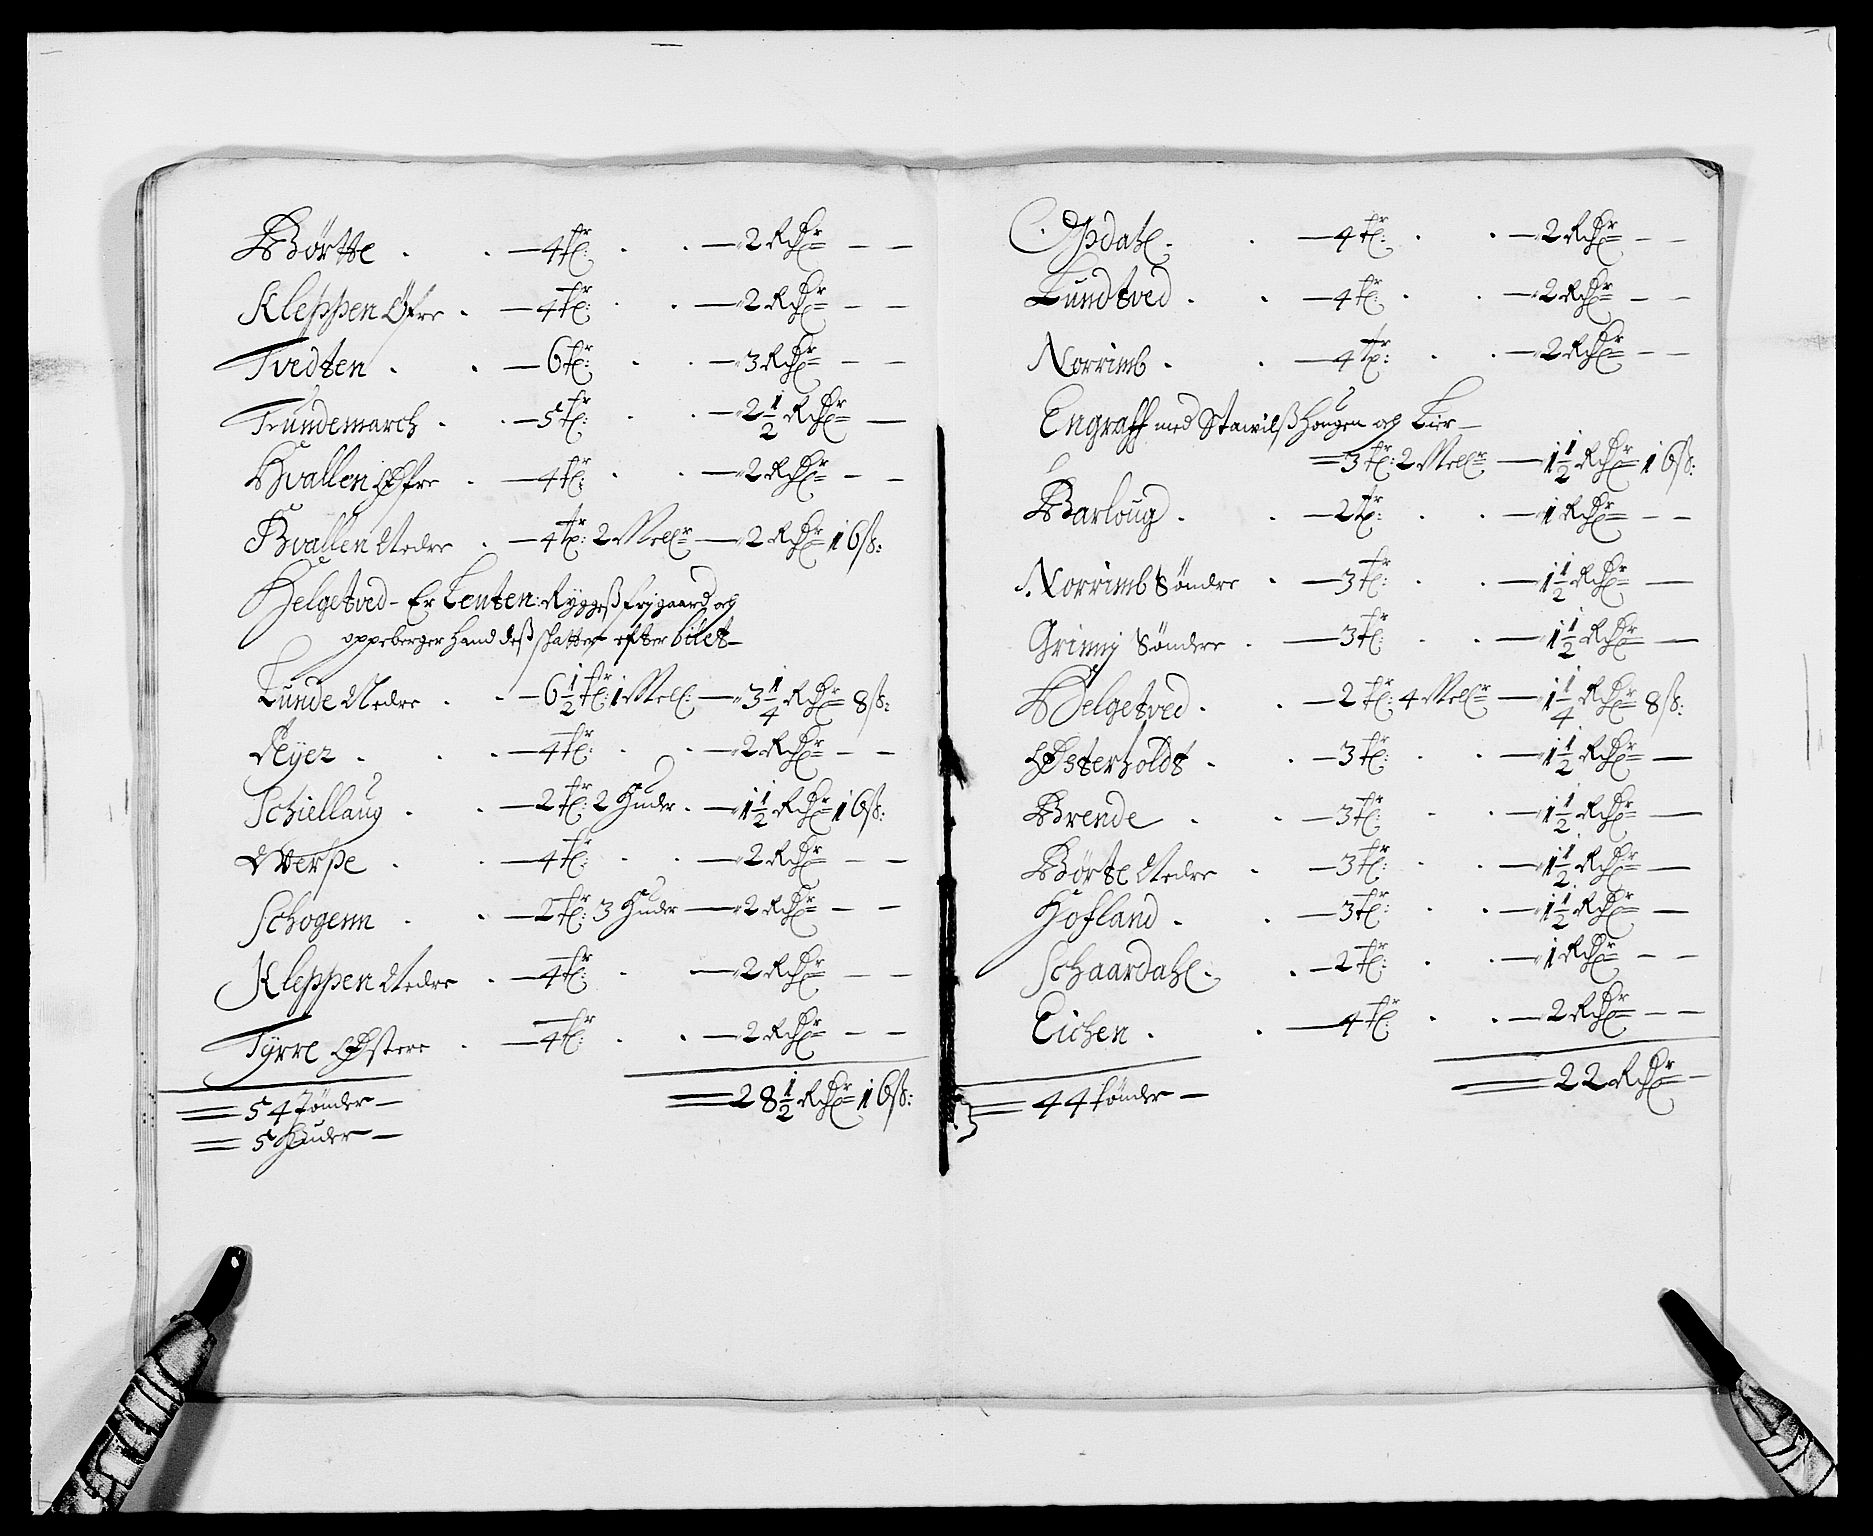 Børtte . . — 4 tr: . . — 2 Rdr — —
Kleppen Øfre . — 4 tr: . . — 2 Rdr — —
Tvedten . . — 6 tr: . . — 3 Rdr — —
Trundemarch . . — 5 tr: . . — 2 1/2 Rdr —
Hvallen Øfre . — 4 tr: . . — 2 Rdr — —
Hvallen Nedre . — 4 tr: 2 Melr — 2 Rdr 16 ß:
Helgetved - Er Leuten: Ryggeß frj gaard och
oppeberger hand deß schatter efter bilet —
Lunde Nedre . . — 6 1/2 tr: 1 Mel: — 3 1/4 Rdr 8 ß:
Aejer . . — 4 tr: . . — 2 Rdr — —
Schiellaug . . — 2 tr: 2 Huder . — 1 1/2 Rdr 16 ß:
Werpe . . — 4 tr: . . — 2 Rdr — —
Schogenn . . — 2 tr: 3 Huder — 2 Rdr — —
Kleppen Nedre . — 4 tr: . — 2 Rdr — —
Tyrre Østere . — 4 tr: . . — 2 Rdr — —
= 54 Tønder — = 28 1/2 Rdr 16 ß:
= 5 Huder —
Opdahl . . — 4 tr: . . — 2 Rdr — —
Lundtved . . — 4 tr: . . — 2 Rdr — —
Norrimb . . — 4 tr: . . — 2 Rdr — —
Engraff med Stawilß Hougen och Lier —
= 3 tr: 2 Melr — 1 1/2 Rdr 16 ß:
Barloug . . — 2 tr: . . — 1 Rdr — —
Norrimb Søndre . — 3 tr: . . — 1 1/2 Rdr —
Grimj Søndere . — 3 tr: . . — 1 1/2 Rdr —
Helgetved . . — 2 tr: 4 Melr — 1 1/4 Rdr 8 ß:
Østerholdt . . — 3 tr: . . — 1 1/2 Rdr —
Brende . . — 3 tr: . . — 1 1/2 Rdr —
Børte Nedre . — 3 tr: . . — 1 1/2 Rdr —
Hofland . . — 3 tr: . . — 1 1/2 Rdr —
Schaardahl . . — 2 tr: . . — 1 Rdr — —
Eichen . . — 4 tr: . . — 2 Rdr — —
= 44 tønder — = 22 Rdr —